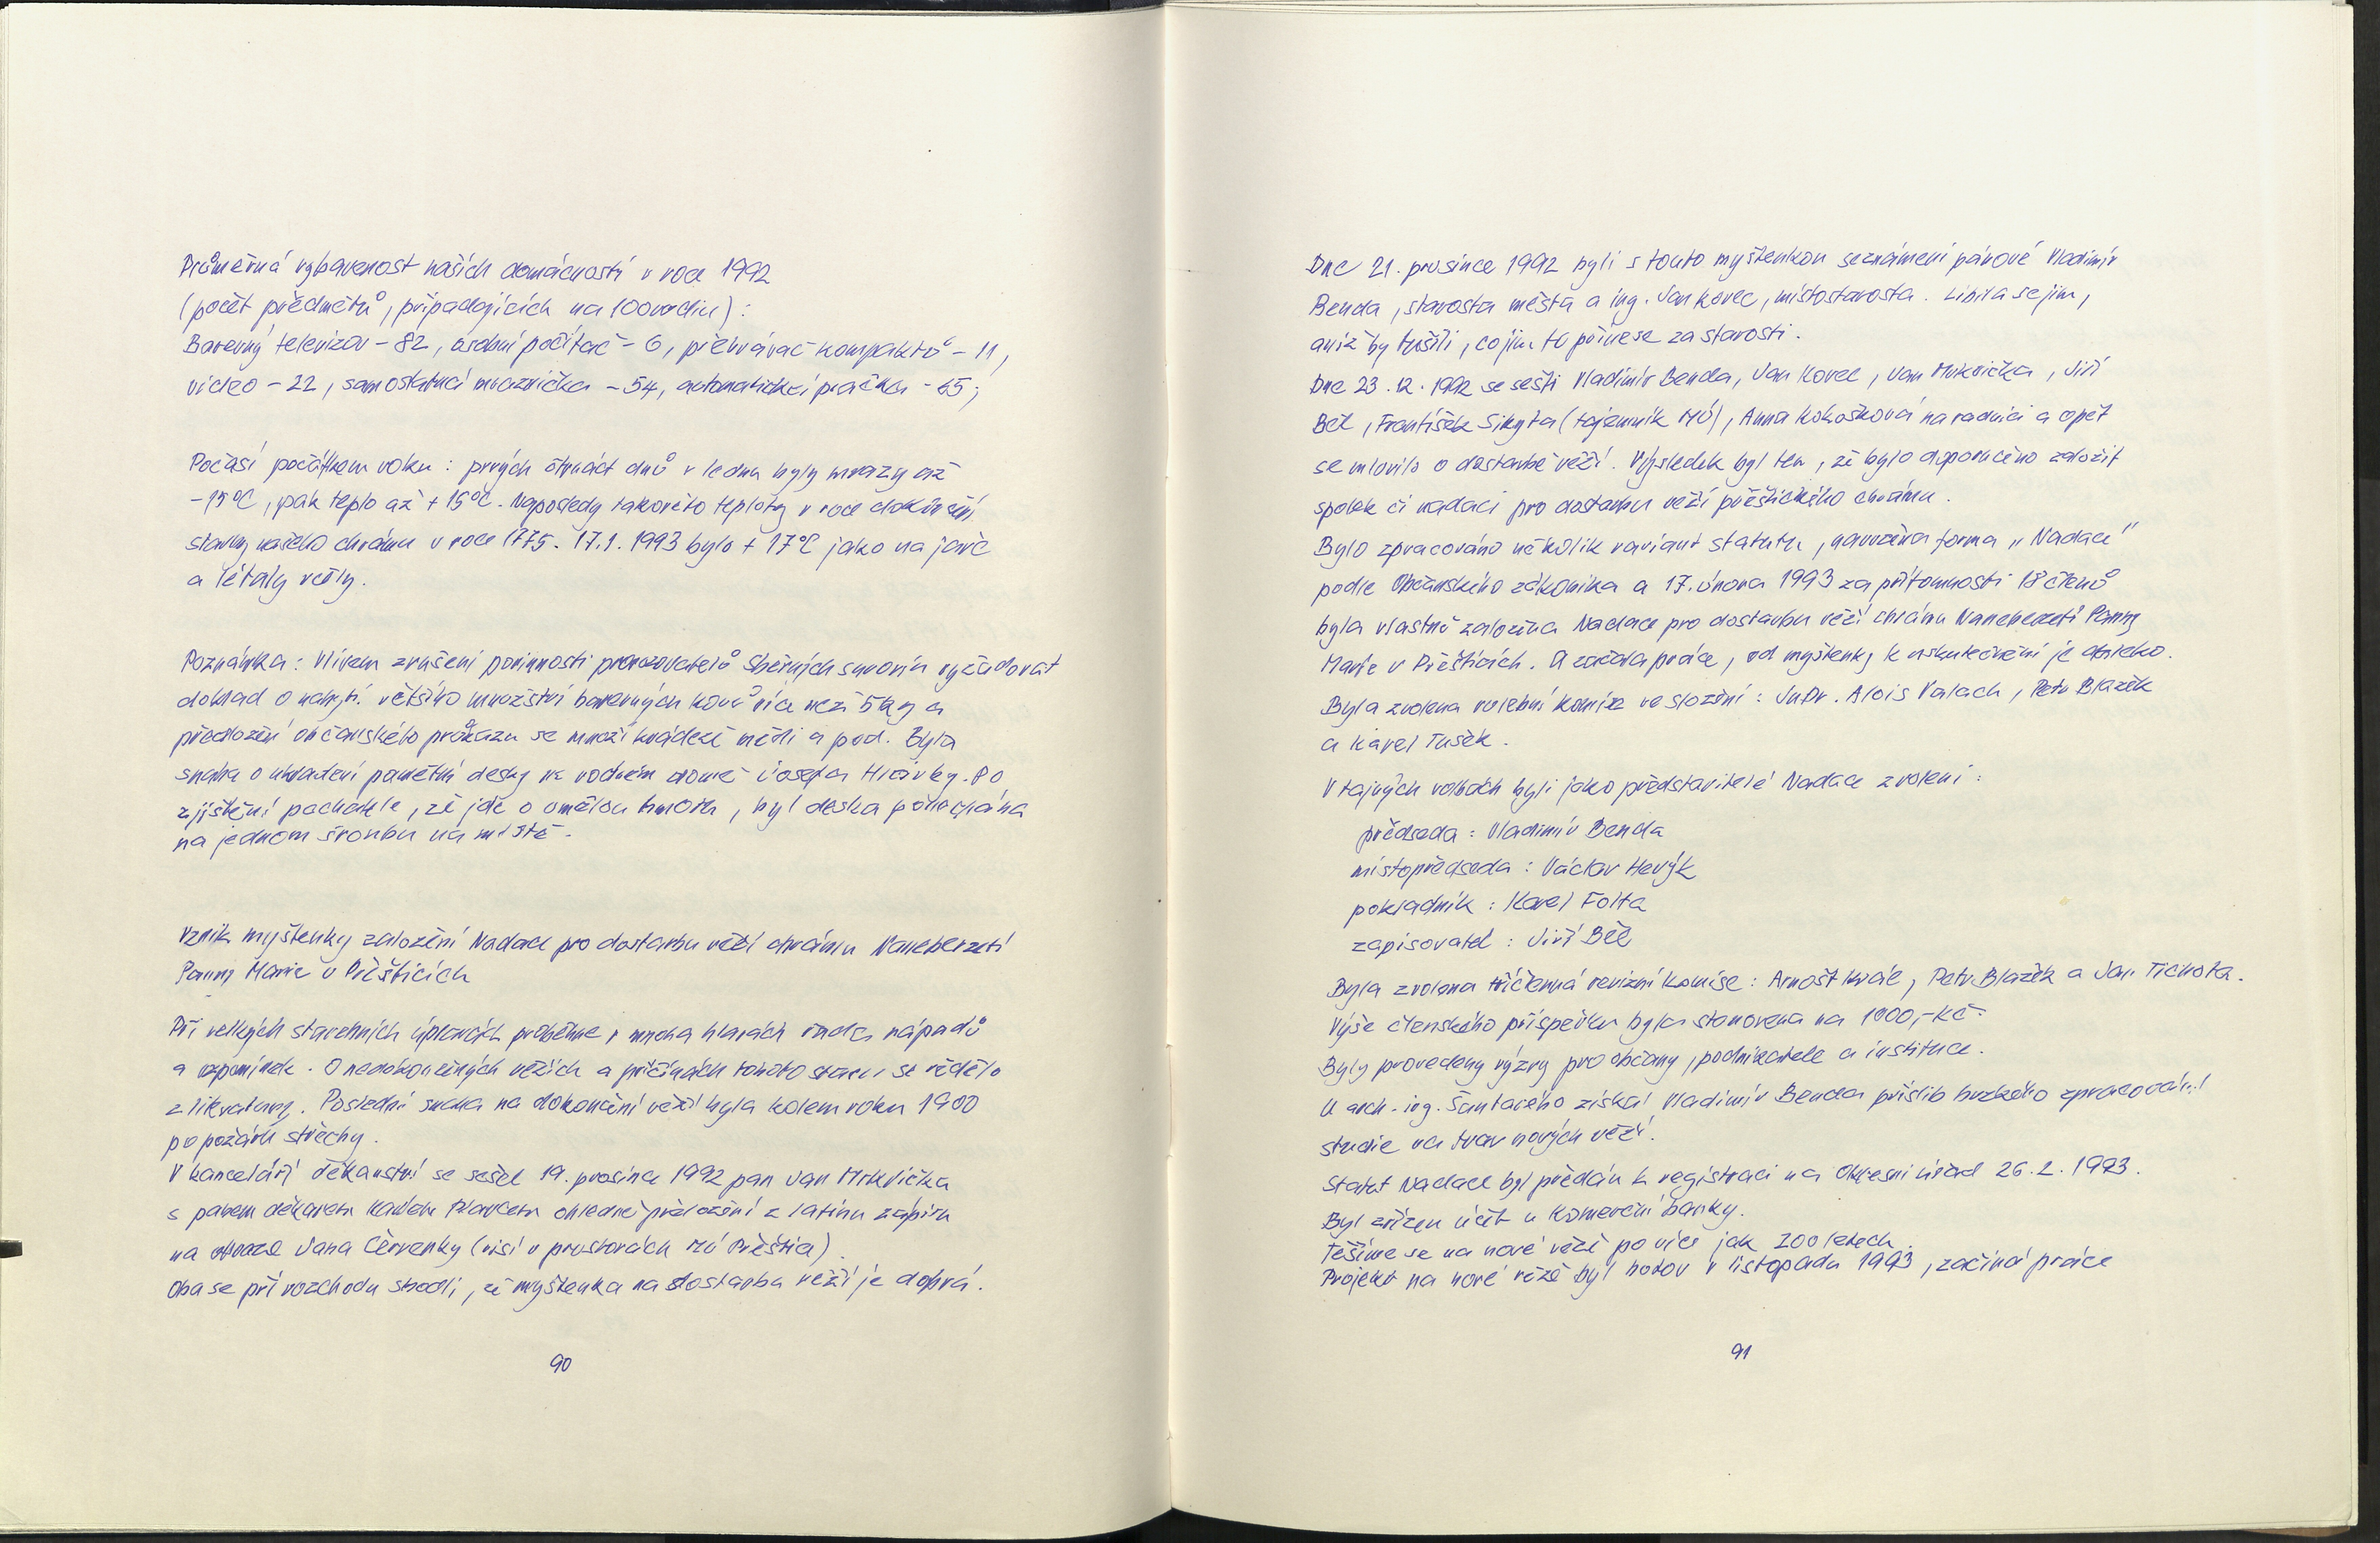 Průměrná vybavenost našich domácností v roce 1992
(počet předmětů, připadajících na 100 rodin):
Barevný televizor – 82, osobní počítač – 6, přehrávač kompaktů – 11,
video – 22, samostatná mraznička – 54, automatická pračka – 65;
Počasí počátkem roku: prvých čtrnáct dnů v lednu byly mrazy až
-15°C, pak teplo až +15°C. Naposledy takovéto teploty v roce dokončení
stavby našeho chrámu v roce 1775. 17.1.1993 bylo +17°C jako na jaře
a létaly včely.
Poznámka: Vlivem zrušení povinnosti provozovatelů sběrných surovin vyžadovat
doklad o nabytí většího množství barevných kovů více než 5 kg a
předložení občanského průkazu se množí krádeže mědi a pod. Byla
snaha o ukradení pamětní desky na rodném domě Josefa Hlávky. Po
zjištění pachatele, že jde o umělou hmotu, byl deska ponechána
na jednom šroubu na místě.
Vznik myšlenky založení Nadace pro dostavbu věží chrámu Nanebevzetí
Panny Marie v Přešticích
Při velkých stavebních úpravách proběhne v mnoha hlavách řada nápadů
a vzpomínek. O nedokončených věžích a příčinách tohoto stavu se vědělo
z literatury. Poslední snaha na dokončení věží byla kolem roku 1900
po požáru střechy.
V kanceláři děkanství se sešel 19. prosince 1992 pan Jan Mrkvička
s panem děkanem Karlem Plavcem ohledně přeložení z latinu zápisu
na obraze Jana Červenky (visí v prostorách MÚ Přeštice).
Oba se při rozchodu shodli, že myšlenka na dostavba věží je dobrá.
90
Dne 21. prosince 1992 byli s touto myšlenkou seznámeni pánové Vladimír
Benda, starosta města a ing. Jan Kovec, místostarosta. Líbila se jim,
aniž by tušili, co jim to přinese za starosti.
Dne 23.12.1992 se sešli Vladimír Benda, Jan Kovec, Jan Mrkvička, Jiří
Běl, František Sikyta (tajemník MÚ), Anna Kokošková na radnici a opět
se mluvilo o dostavbě věží. Výsledek byl ten, že bylo doporučeno založit
spolek či nadaci pro dostavbu věží přeštického chrámu.
Bylo zpracováno několik variant statutu, navržena forma „Nadace"
podle Občanského zákoníka a 17. února 1993 za přítomnosti 18 členů
byla vlastně založena Nadace pro dostavbu věží chrámu Nanebevzetí Panny
Marie v Přešticích. A začala práce, od myšlenky k uskutečnění je daleko.
Byla zvolena volební komise ve složení: JuDr. Alois Valach, Petr Blažek
a Karel Tušek.
V tajných volbách byli jako představitelé Nadace zvoleni:
předseda: Vladimír Benda
místopředseda: Václav Hevýk
pokladník: Karel Folta
zapisovatel: Jiří Běl
Byla zvolena tříčlenná revizní komise: Arnošt Král, Petr Blažek a Jan Tichota.
Výše členského příspěvku byla stanovena na 1000,-Kč.
Byly provedeny výzvy pro občany, podnikatele a instituce.
U arch. ing. Šantavého získal Vladimír Benda příslib brzkého zpracování
studie na tvar nových věží.
Statut Nadace byl předán k registraci na Okresní úřad 26.2.1993.
Byl zřízen účet u Komerční banky.
Těšíme se na nové věže po více jak 200 letech.
Projekt na nové věže byl hotov v listopadu 1993, začíná práce
91